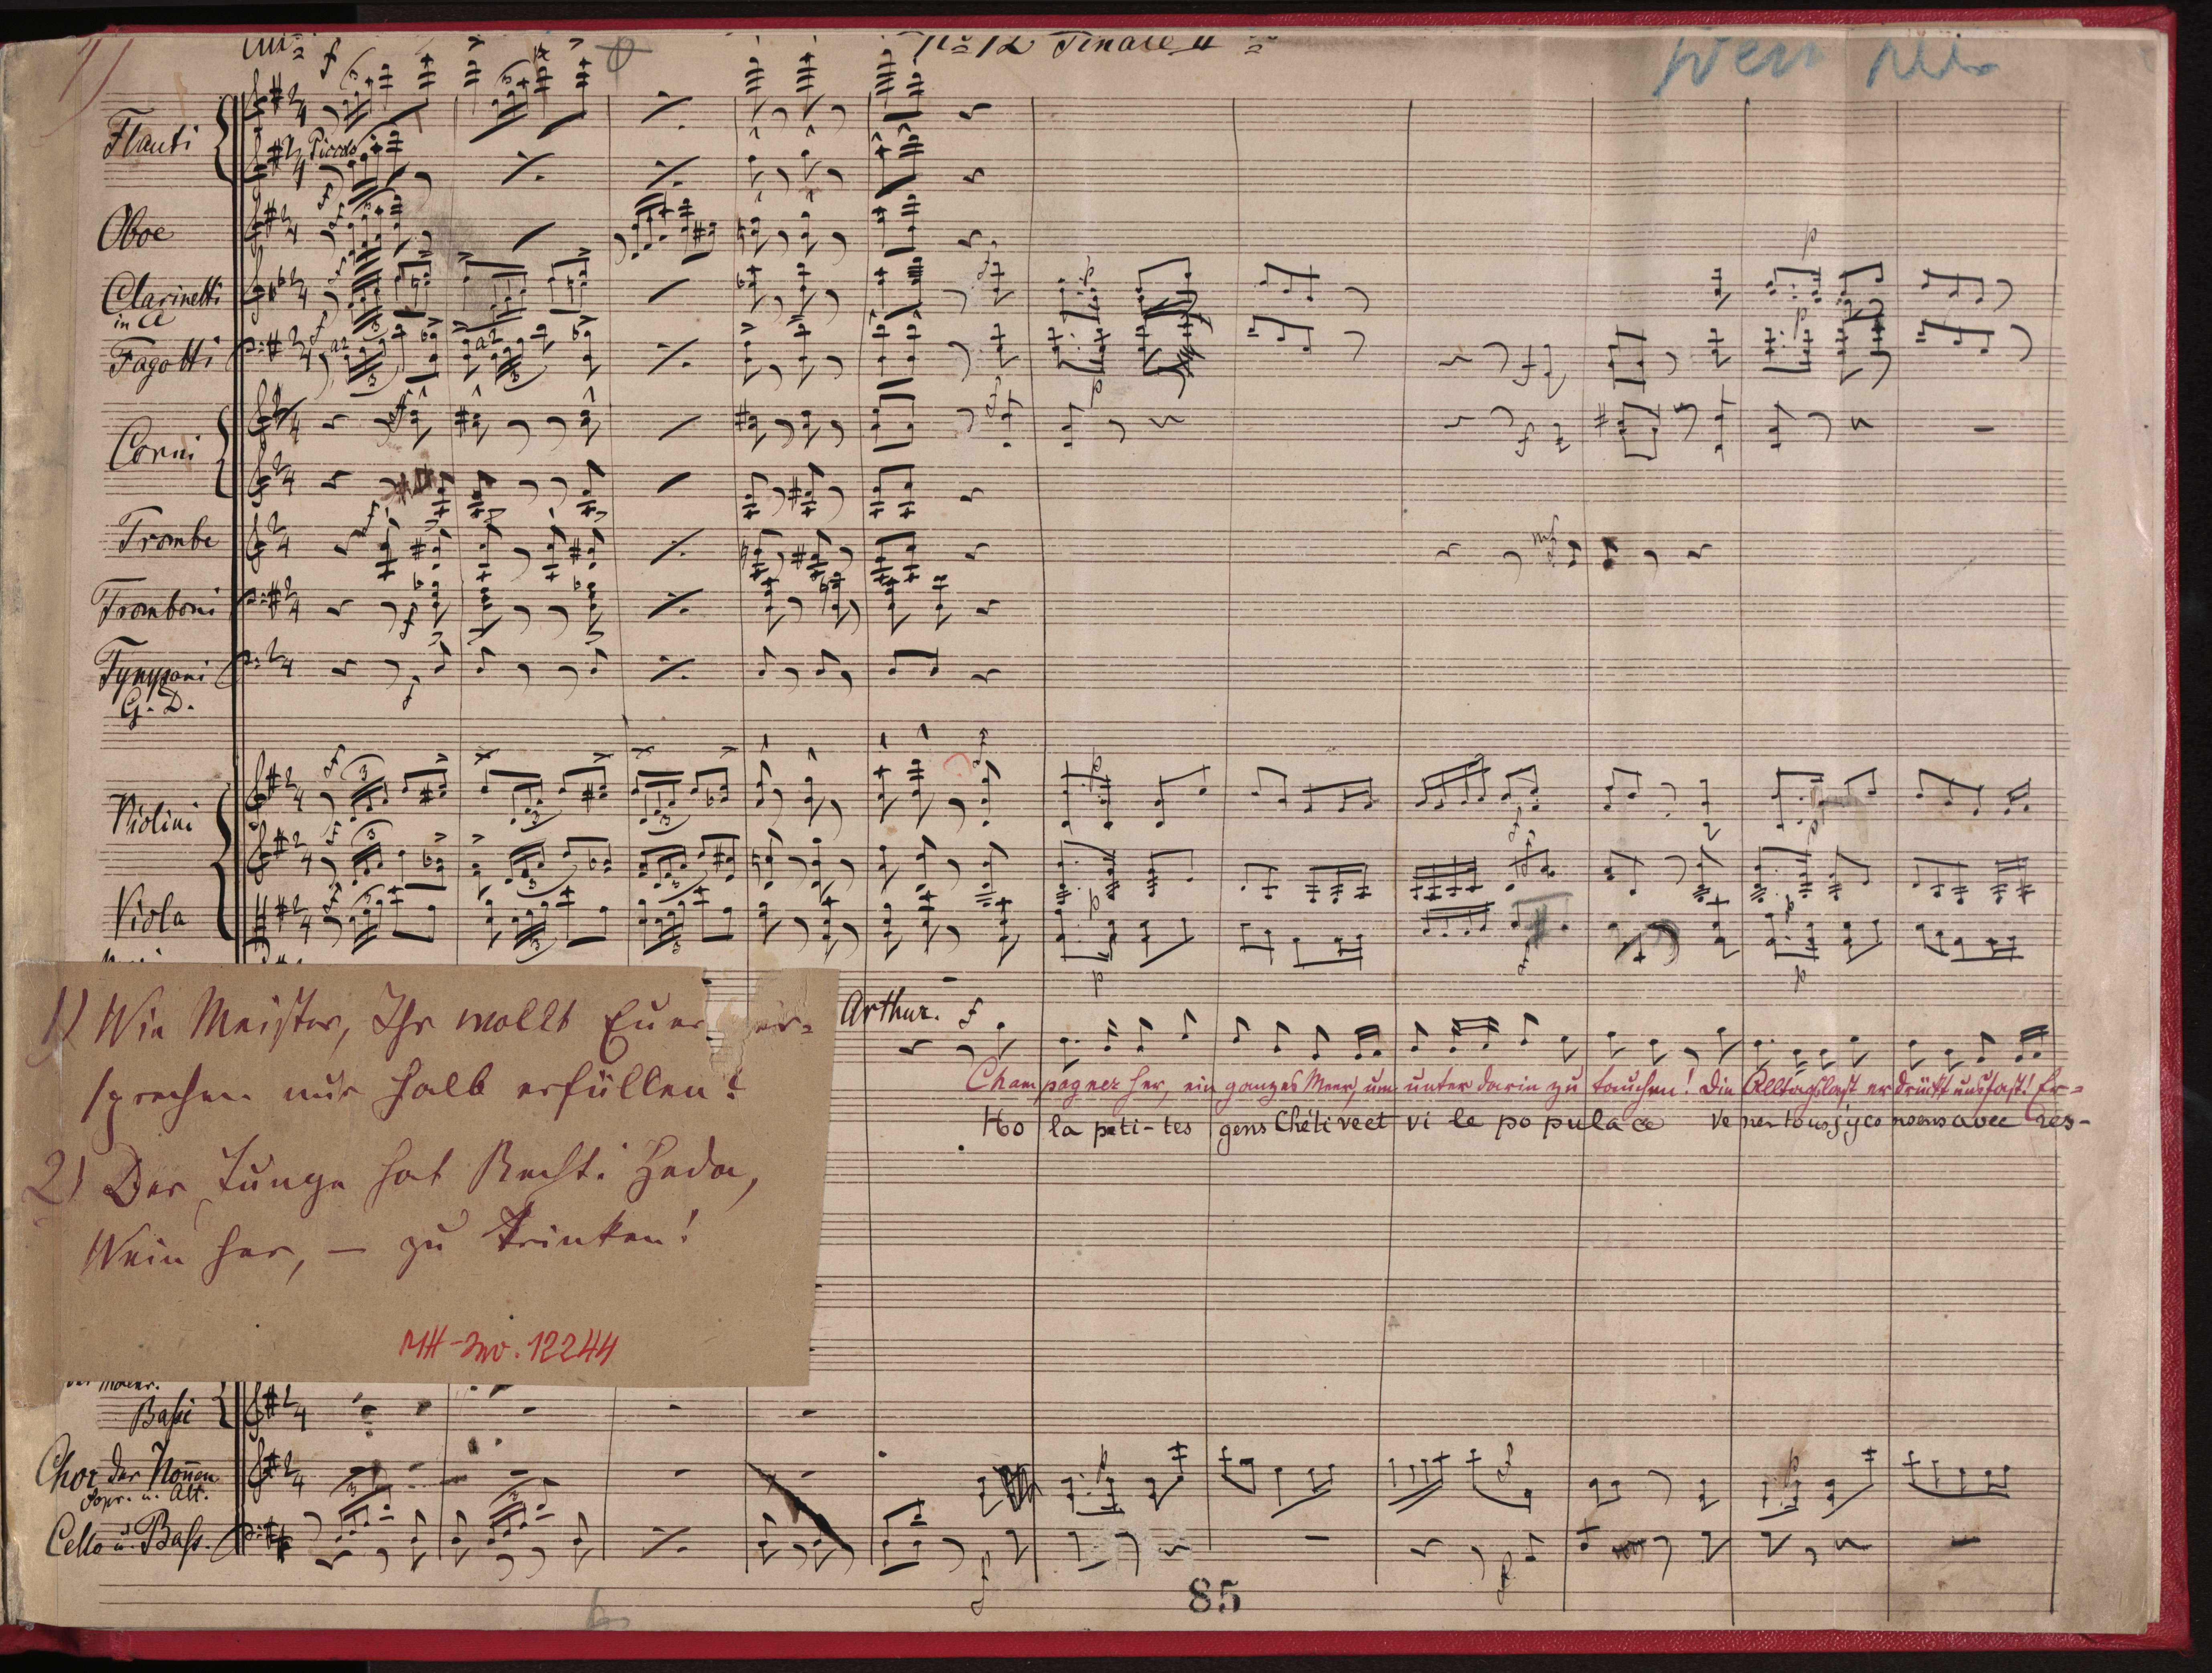 1)
No 12 Finale II
Flauti
Piccolo
Oboe
Clarinetti
in A
Fagotti
a2
a2
Corni
Trombe
mf
Tromboni
Tympani
G. D.
Violini
Viola
1) Wie Meister, Ihr wollt Euer Ver-
sprechen nur halb erfüllen?
2) Der Junge hat Recht! Heda,
Wein her, – zu trinken!
MH-Inv. 12244
Arthur.
Champagner her, ein ganzes Meer, um unter darin zu tauchen! Die Alltagslast erdrückt uns fast! Er-
Ho la peti-tes gens Chétive et vi le populace venez tous j'y consens avec res-
Bassi
Chor der Nonnen
Sopr. u. Alt.
Cello u. Bass.
85